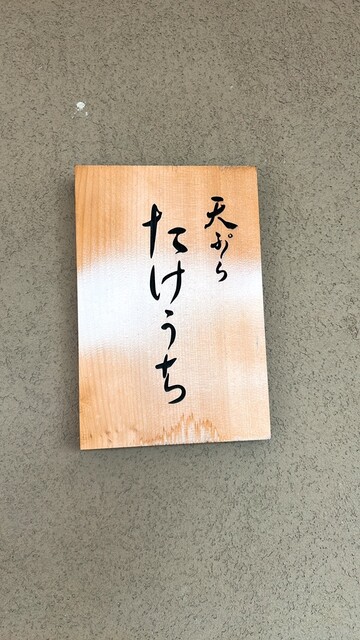 天ぷら
たけうち